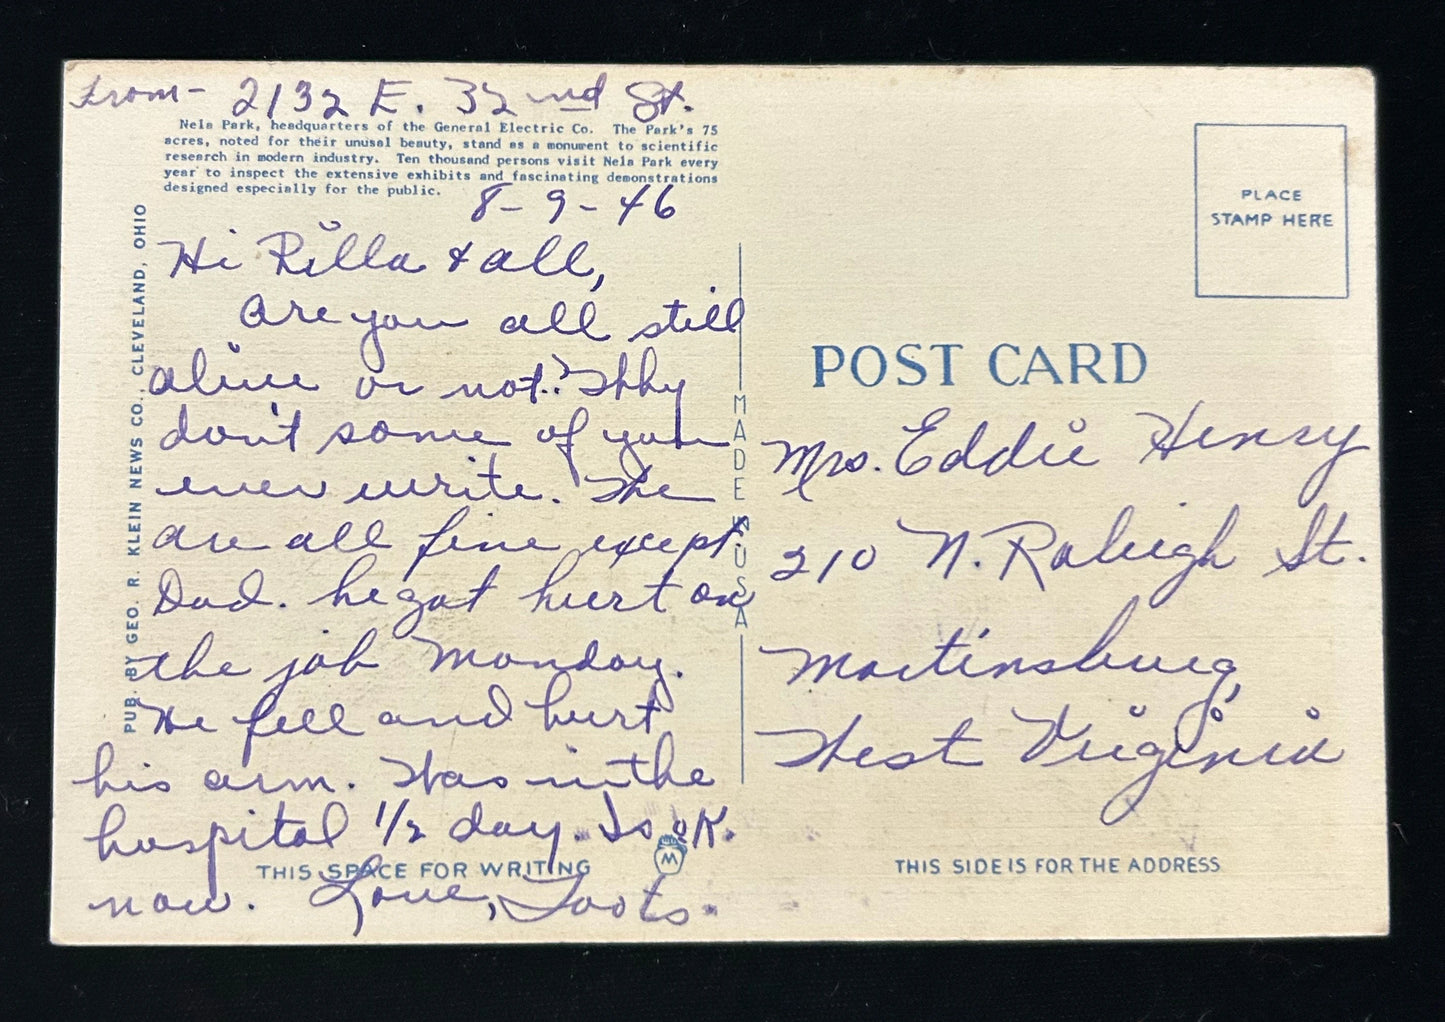 From- 2132 E. 32nd St.
Nela Park, headquarters of the General Electric Co. The Park's 75
acres, noted for their unusal beauty, stand as a monument to scientific
research in modern industry. Ten thousand persons visit Nela Park every
year to inspect the extensive exhibits and fascinating demonstrations
designed especially for the public.
8-9-46
Hi Rilla & all,
Are you all still
alive or not? Why
don't some of you
ever write. We
are all fine except
Dad. he got hurt on
the job Monday.
He fell and hurt
his arm. Was in the
hospital 1/2 day. Is OK.
now. Love, Toots.
THIS SPACE FOR WRITING
W
PUB. BY GEO. R. KLEIN NEWS CO., CLEVELAND, OHIO
MADE IN USA
PLACE
STAMP HERE
POST CARD
Mrs. Eddie Henry
210 N. Raleigh St.
Martinsburg,
West Virginia
THIS SIDE IS FOR THE ADDRESS